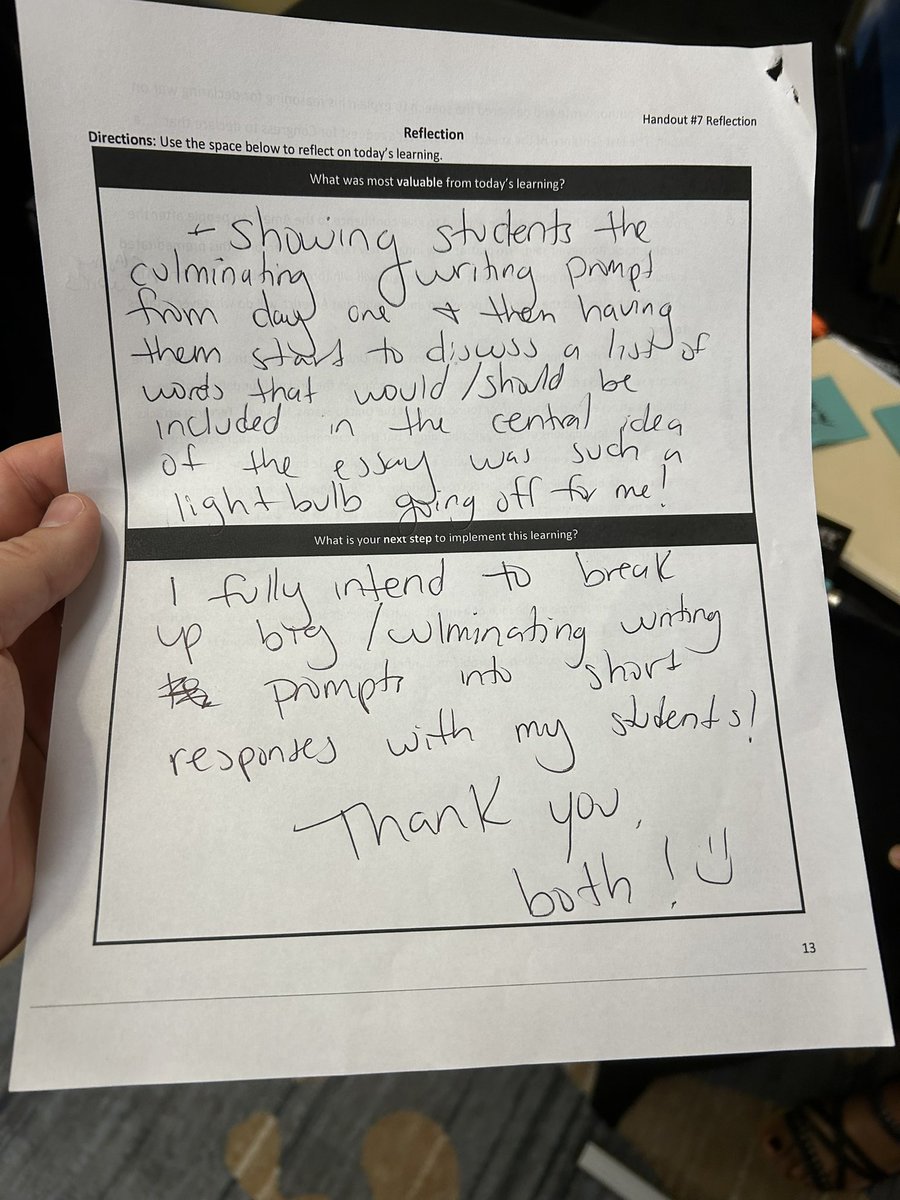 Handout #7 Reflection
Reflection
Directions: Use the space below to reflect on today's learning.
What was most valuable from today's learning?
+ Showing students the
culminating writing prompt
from day one + then having
them start to discuss a list of
words that would/should be
included in the central idea
of the essay was such a
lightbulb going off for me!
What is your next step to implement this learning?
I fully intend to break
up big/culminating writing
prompts into short
responses with my students!
Thank you,
both! :)
13